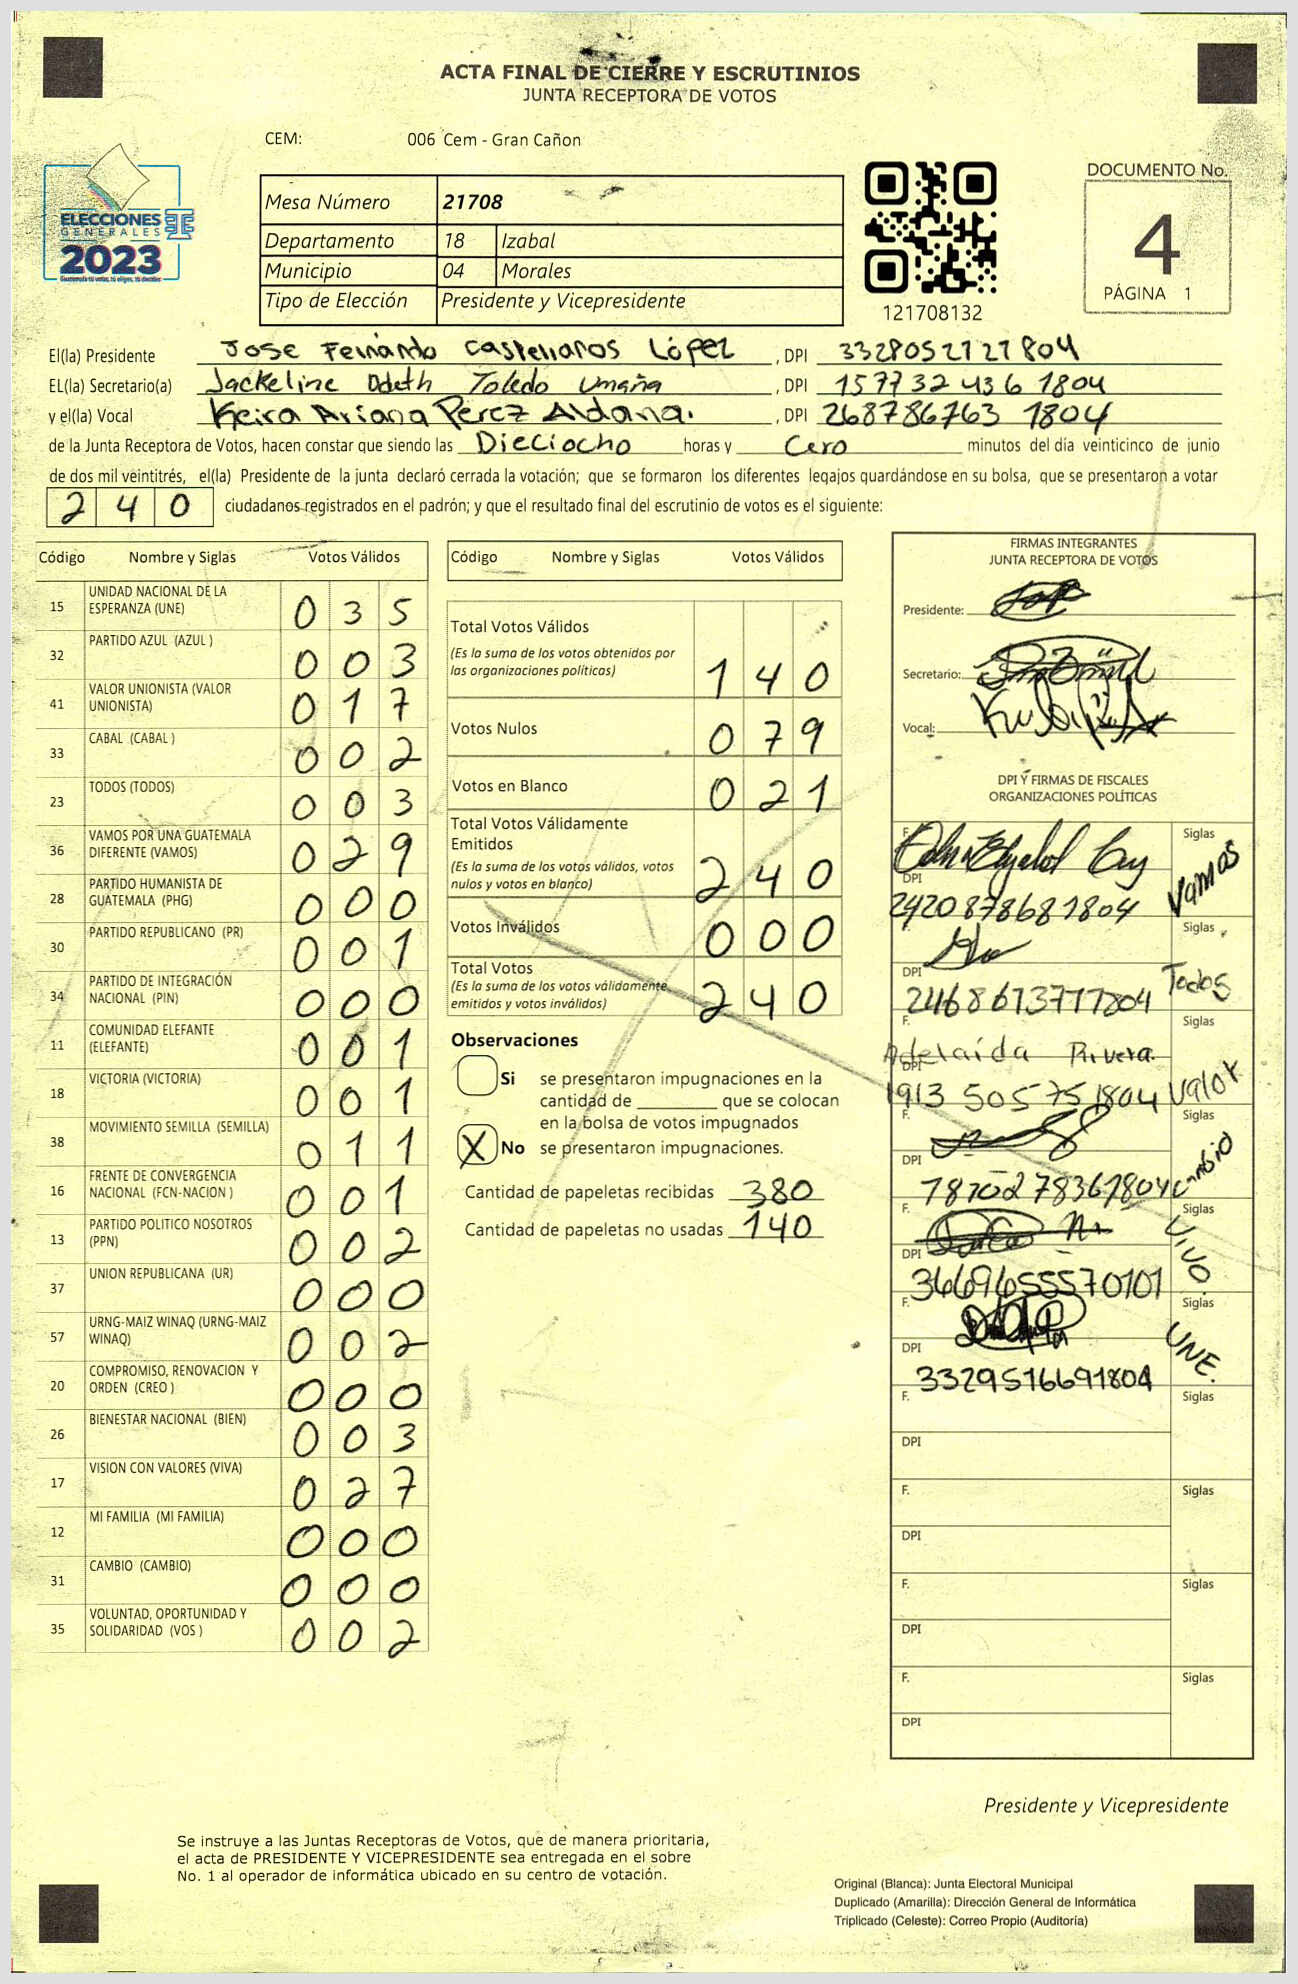 ACTA FINAL DE CIERRE Y ESCRUTINIOS
JUNTA RECEPTORA DE VOTOS
CEM: 006 Cem - Gran Cañon
ELECCIONES
GENERALES
2023
Mesa Número 21708
Departamento 18 Izabal
Municipio 04 Morales
Tipo de Elección Presidente y Vicepresidente
121708132
DOCUMENTO No.
4
PÁGINA 1
El(la) Presidente Jose Fernando Castellanos López, DPI 3328052727804
EL(la) Secretario(a) Jackeline Odeth Toledo Umaña, DPI 1577324361804
y el(la) Vocal Keira Ariana Perez Aldana., DPI 268786763 1804
de la Junta Receptora de Votos, hacen constar que siendo las Dieciocho horas y Cero minutos del día veinticinco de junio
de dos mil veintitrés, el(la) Presidente de la junta declaró cerrada la votación; que se formaron los diferentes legajos guardándose en su bolsa, que se presentaron a votar
240 ciudadanos registrados en el padrón; y que el resultado final del escrutinio de votos es el siguiente:
Código Nombre y Siglas Votos Válidos
15 UNIDAD NACIONAL DE LA ESPERANZA (UNE) 035
32 PARTIDO AZUL (AZUL ) 003
41 VALOR UNIONISTA (VALOR UNIONISTA) 017
33 CABAL (CABAL ) 002
23 TODOS (TODOS) 003
36 VAMOS POR UNA GUATEMALA DIFERENTE (VAMOS) 029
28 PARTIDO HUMANISTA DE GUATEMALA (PHG) 000
30 PARTIDO REPUBLICANO (PR) 001
34 PARTIDO DE INTEGRACIÓN NACIONAL (PIN) 000
11 COMUNIDAD ELEFANTE (ELEFANTE) 001
18 VICTORIA (VICTORIA) 001
38 MOVIMIENTO SEMILLA (SEMILLA) 011
16 FRENTE DE CONVERGENCIA NACIONAL (FCN-NACION ) 001
13 PARTIDO POLITICO NOSOTROS (PPN) 002
37 UNION REPUBLICANA (UR) 000
57 URNG-MAIZ WINAQ (URNG-MAIZ WINAQ) 002
20 COMPROMISO, RENOVACION Y ORDEN (CREO ) 000
26 BIENESTAR NACIONAL (BIEN) 003
17 VISION CON VALORES (VIVA) 027
12 MI FAMILIA (MI FAMILIA) 000
31 CAMBIO (CAMBIO) 000
35 VOLUNTAD, OPORTUNIDAD Y SOLIDARIDAD (VOS ) 002
Código Nombre y Siglas Votos Válidos
Total Votos Válidos
(Es la suma de los votos obtenidos por
las organizaciones políticas) 140
Votos Nulos 079
Votos en Blanco 021
Total Votos Válidamente
Emitidos
(Es la suma de los votos válidos, votos
nulos y votos en blanco) 240
Votos Inválidos 000
Total Votos
(Es la suma de los votos válidamente
emitidos y votos inválidos) 240
Observaciones
Si se presentaron impugnaciones en la
cantidad de ________ que se colocan
en la bolsa de votos impugnados
X No se presentaron impugnaciones.
Cantidad de papeletas recibidas 380
Cantidad de papeletas no usadas 140
FIRMAS INTEGRANTES
JUNTA RECEPTORA DE VOTOS
Presidente:
Secretario:
Vocal:
DPI Y FIRMAS DE FISCALES
ORGANIZACIONES POLÍTICAS
F. Siglas
DPI 2420878681804 Vamos
F. Siglas
DPI 2468613777804 Todos
F. Adelaida Rivera. Siglas
DPI 1913 50575 1804 Valor
F. Siglas
DPI 1870278361804 Cambio
F. Siglas
DPI 3669655570101 VIVO.
F. Siglas
DPI 3329516691804 UNE.
F. Siglas
DPI
F. Siglas
DPI
F. Siglas
DPI
F. Siglas
DPI
Presidente y Vicepresidente
Se instruye a las Juntas Receptoras de Votos, que de manera prioritaria,
el acta de PRESIDENTE Y VICEPRESIDENTE sea entregada en el sobre
No. 1 al operador de informática ubicado en su centro de votación.
Original (Blanca): Junta Electoral Municipal
Duplicado (Amarilla): Dirección General de Informática
Triplicado (Celeste): Correo Propio (Auditoría)